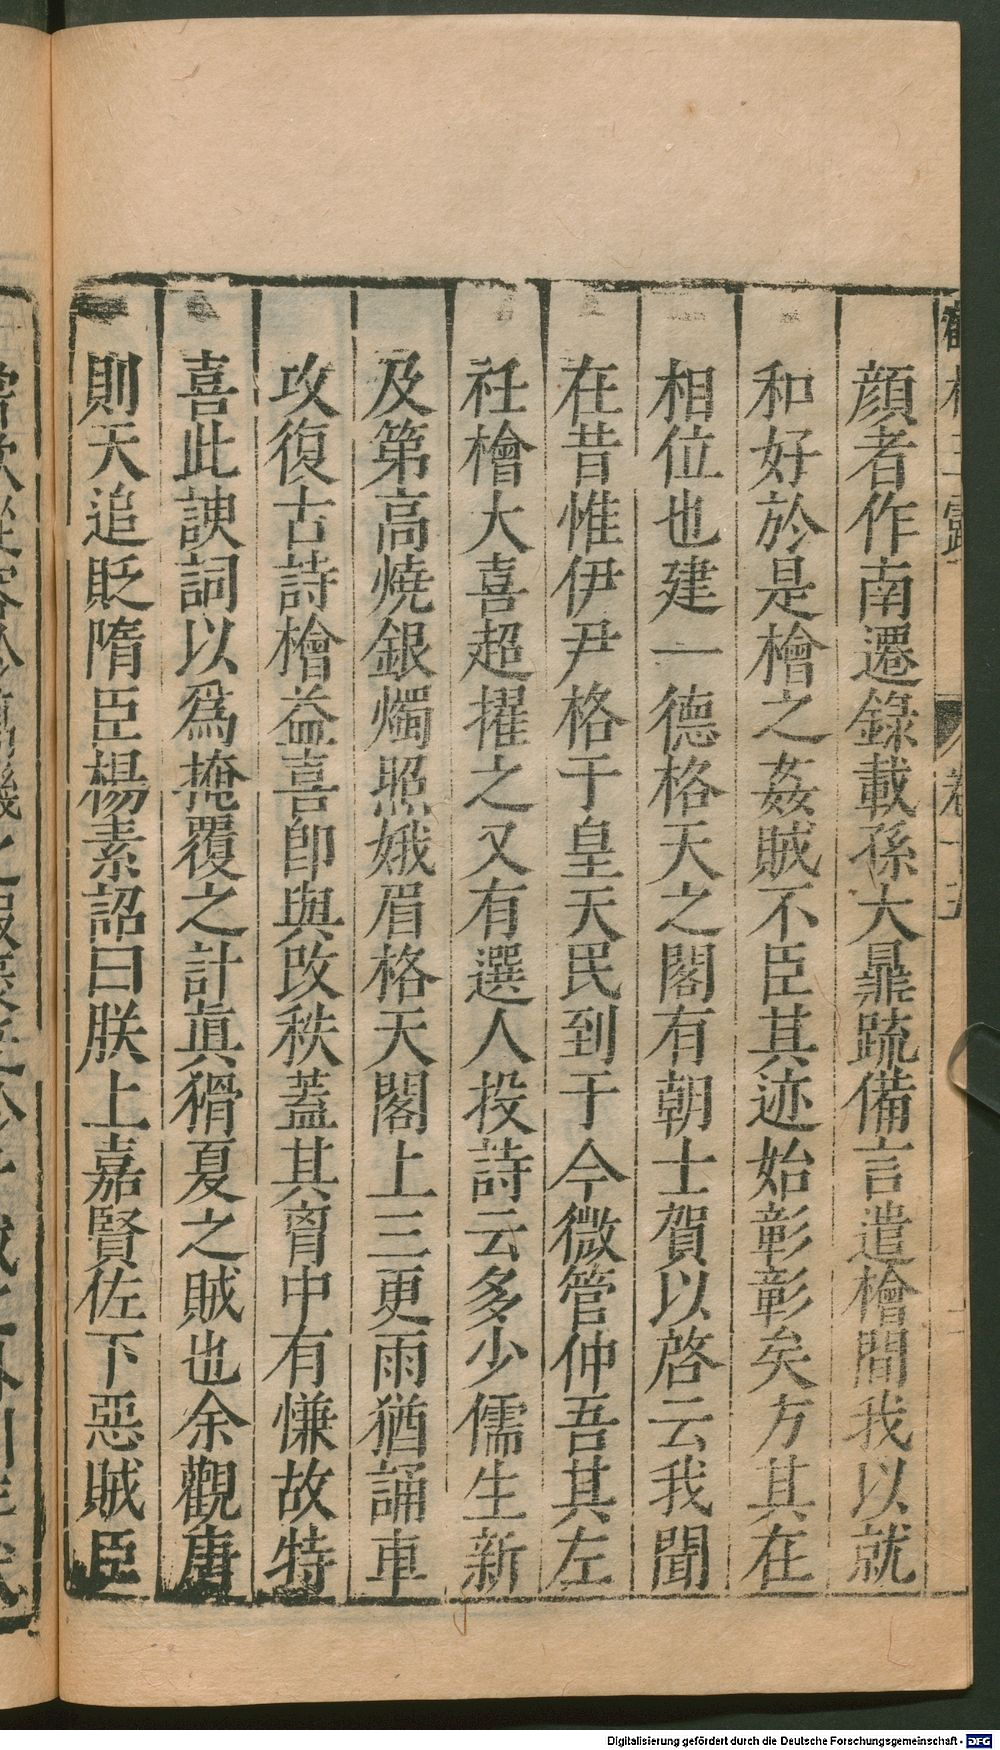 顔者作南遷錄載孫大鼐䟽備言遣檜間我以就
和好於是檜之姦賊不臣其迹始彰彰矣方其在
相位也建一德格天之閣有朝士賀以啓云我聞
在昔惟伊尹格于皇天民到于今微管仲吾其左
衽檜大喜超擢之又有選人投詩云多少儒生新
及第高燒銀燭照娥眉格天閣上三更雨猶誦車
攻復古詩檜益喜卽與改秩蓋其胷中有慊故特
喜此諛詞以爲掩覆之計眞猾夏之賊也余觀唐
則天追貶隋臣楊素詔曰朕上嘉賢佐下惡賊臣
Digitalisierung gefördert durch die Deutsche Forschungsgemeinschaft - DFG